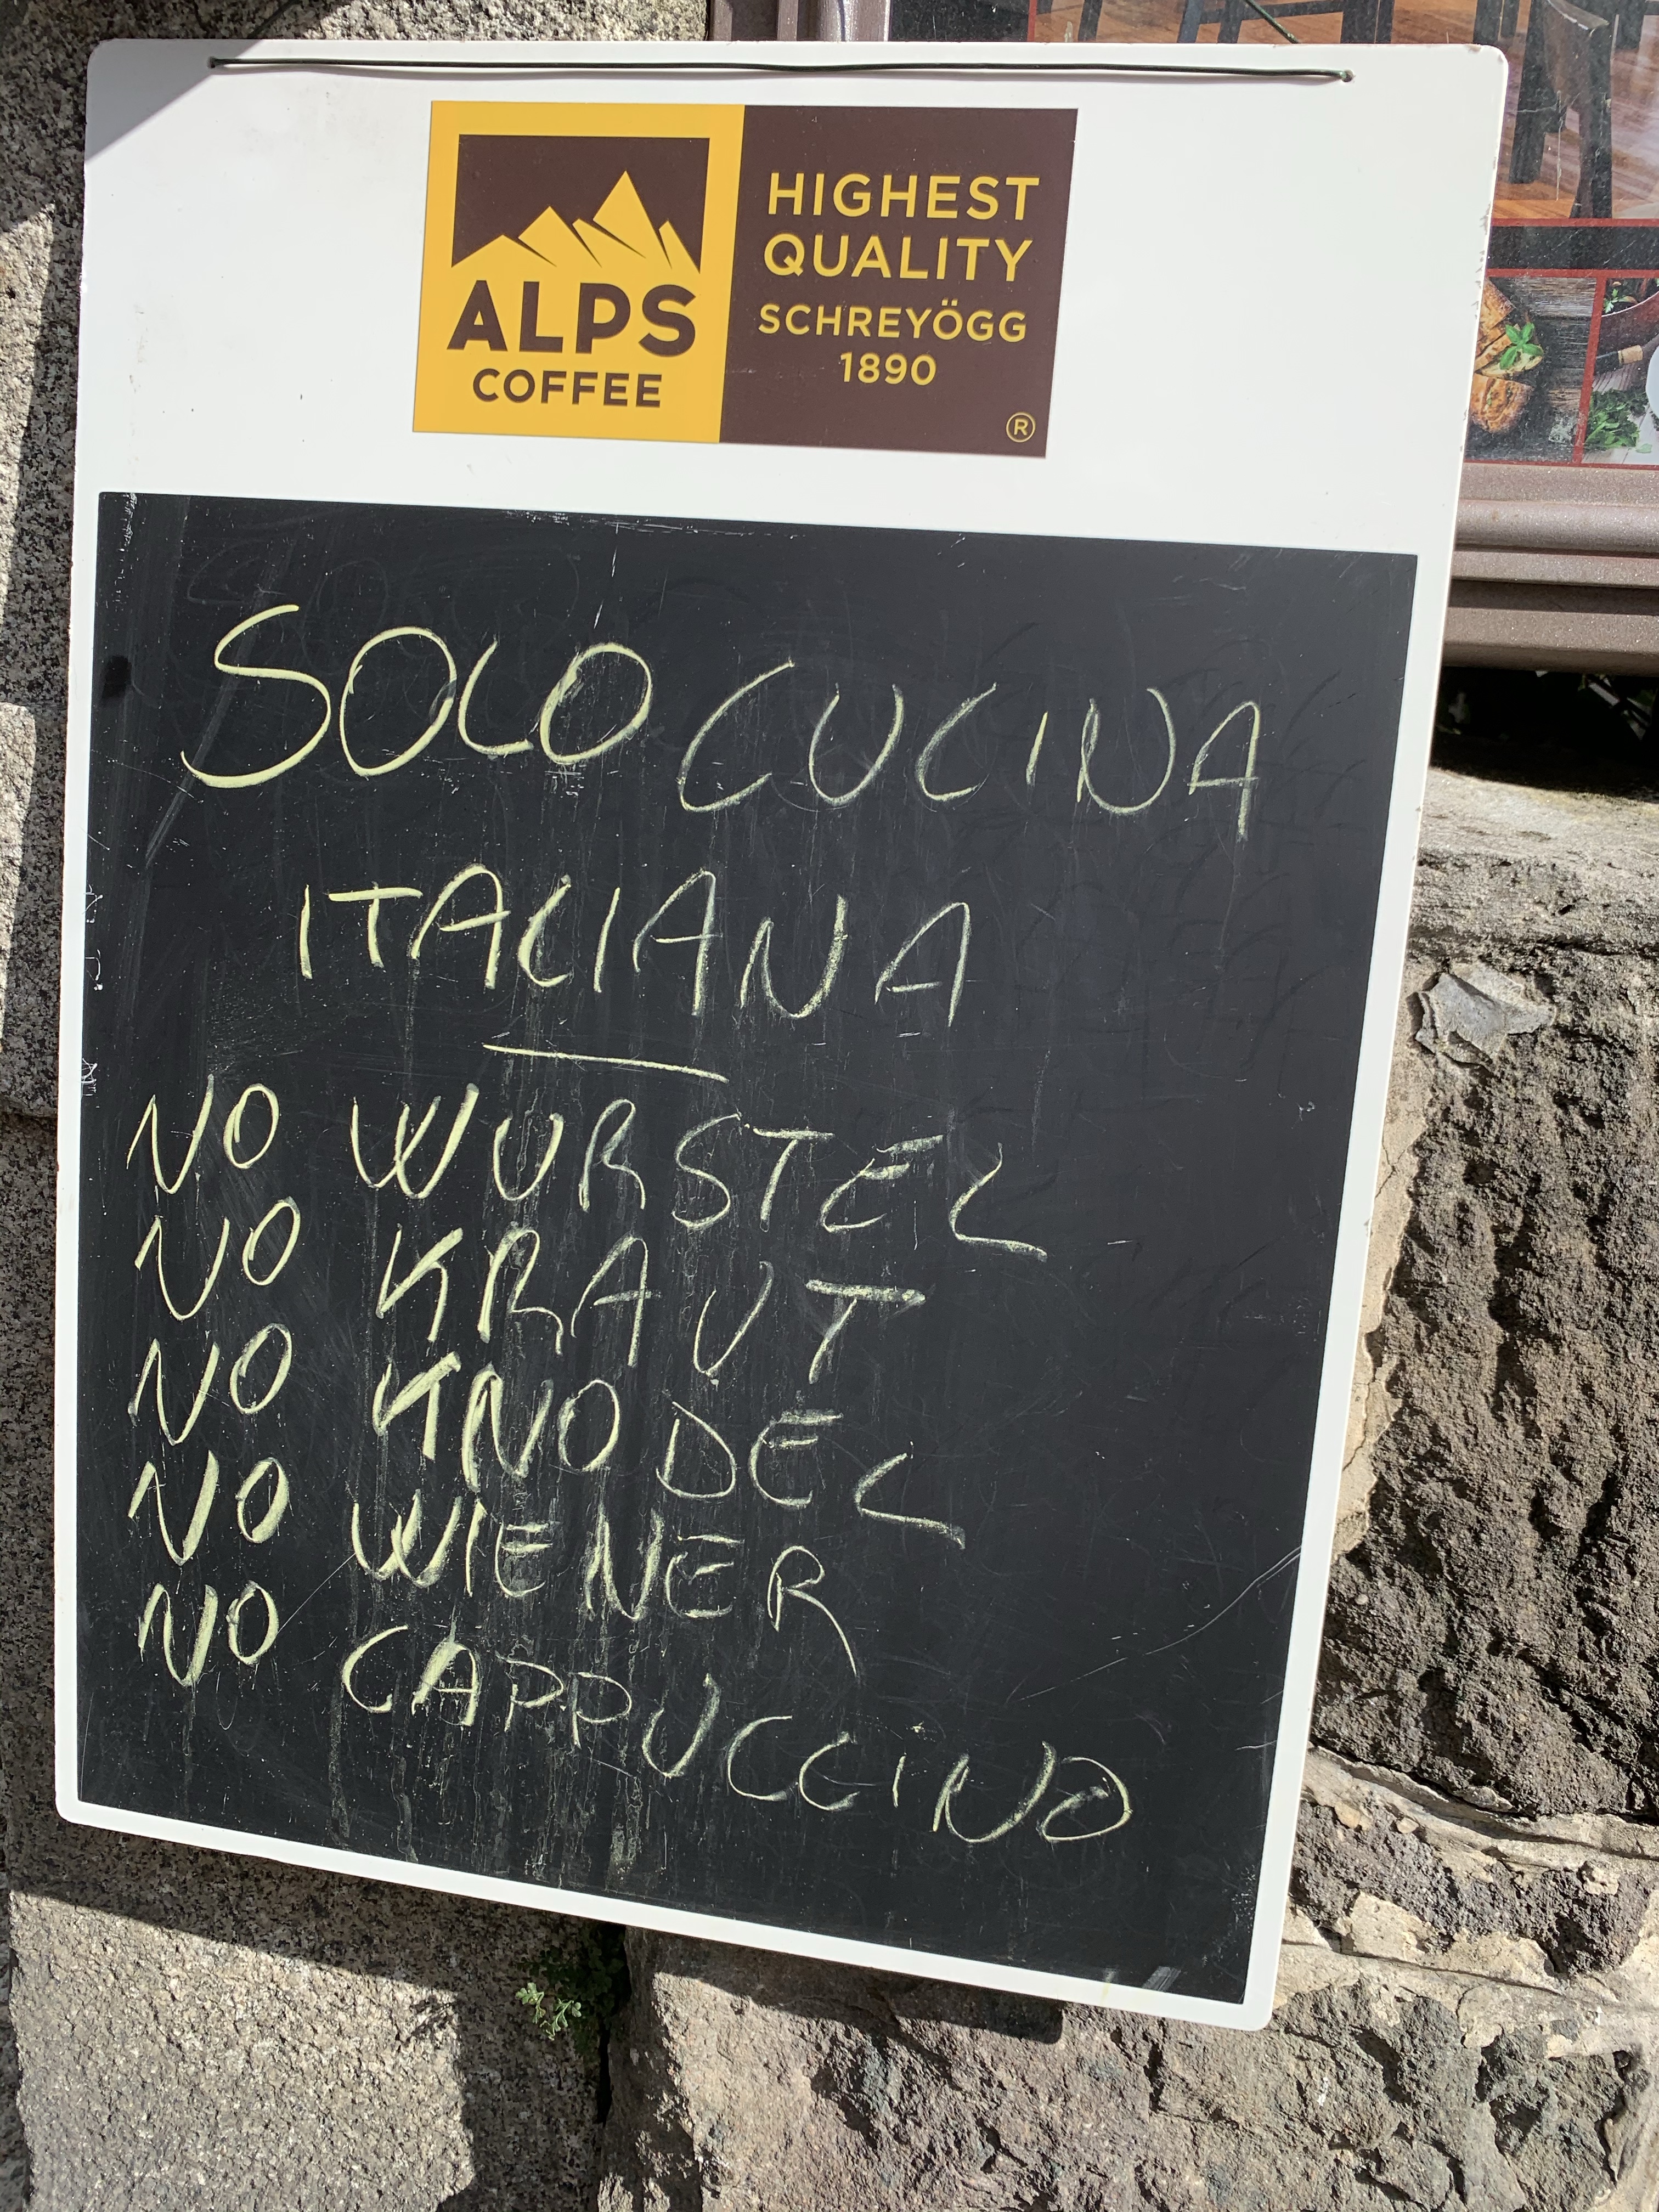 ALPS
COFFEE
HIGHEST
QUALITY
SCHREYÖGG
1890
®
SOLO CUCINA
ITALIANA
NO WURSTEL
NO KRAUT
NO KNODEL
NO WIENER
NO CAPPUCCINO